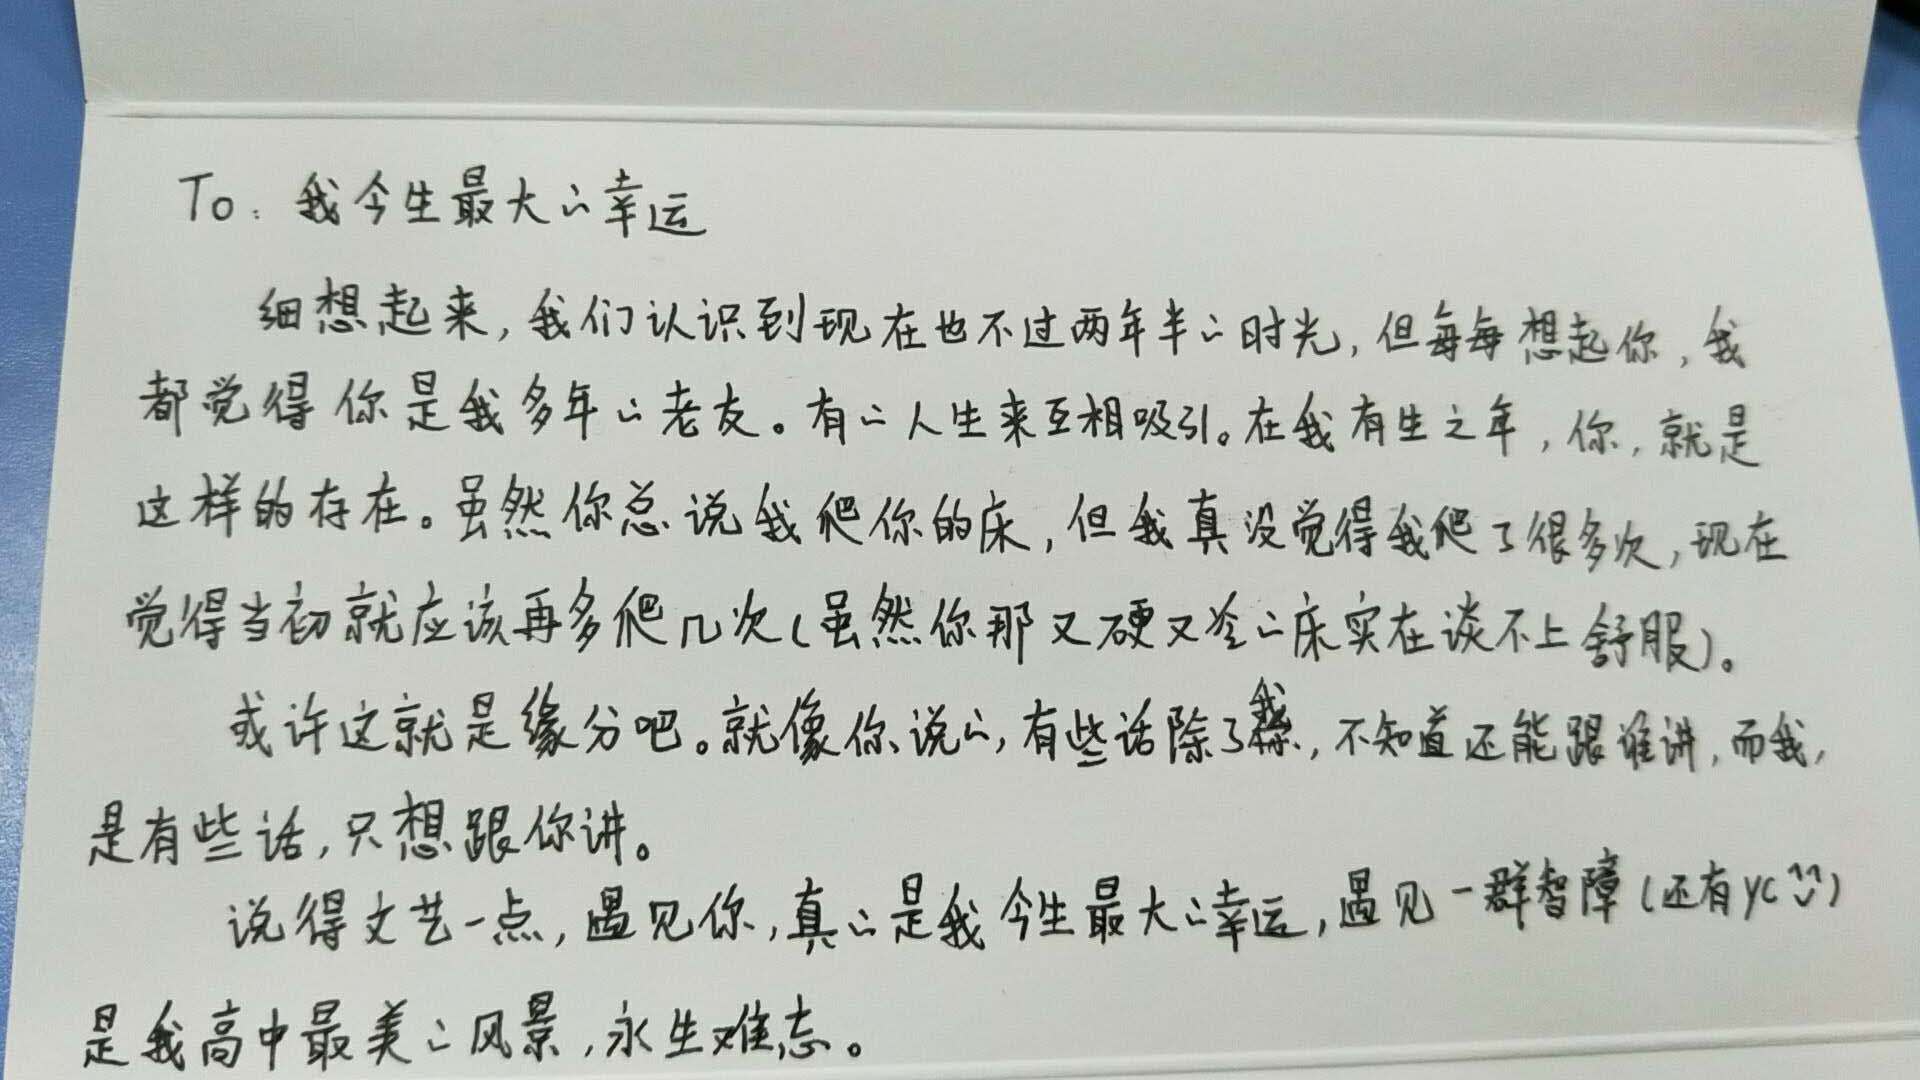 To：我今生最大的幸运
细想起来，我们认识到现在也不过两年半的时光，但每每想起你，我
都觉得你是我多年的老友。有的人生来互相吸引。在我有生之年，你，就是
这样的存在。虽然你总说我爬你的床，但我真没觉得我爬了很多次，现在
觉得当初就应该再多爬几次（虽然你那又硬又冷的床实在谈不上舒服）。
或许这就是缘分吧。就像你说的，有些话除了我，不知道还能跟谁讲，而我，
是有些话，只想跟你讲。
说得文艺一点，遇见你，真的是我今生最大的幸运，遇见一群智障（还有yc^^）
是我高中最美的风景，永生难忘。